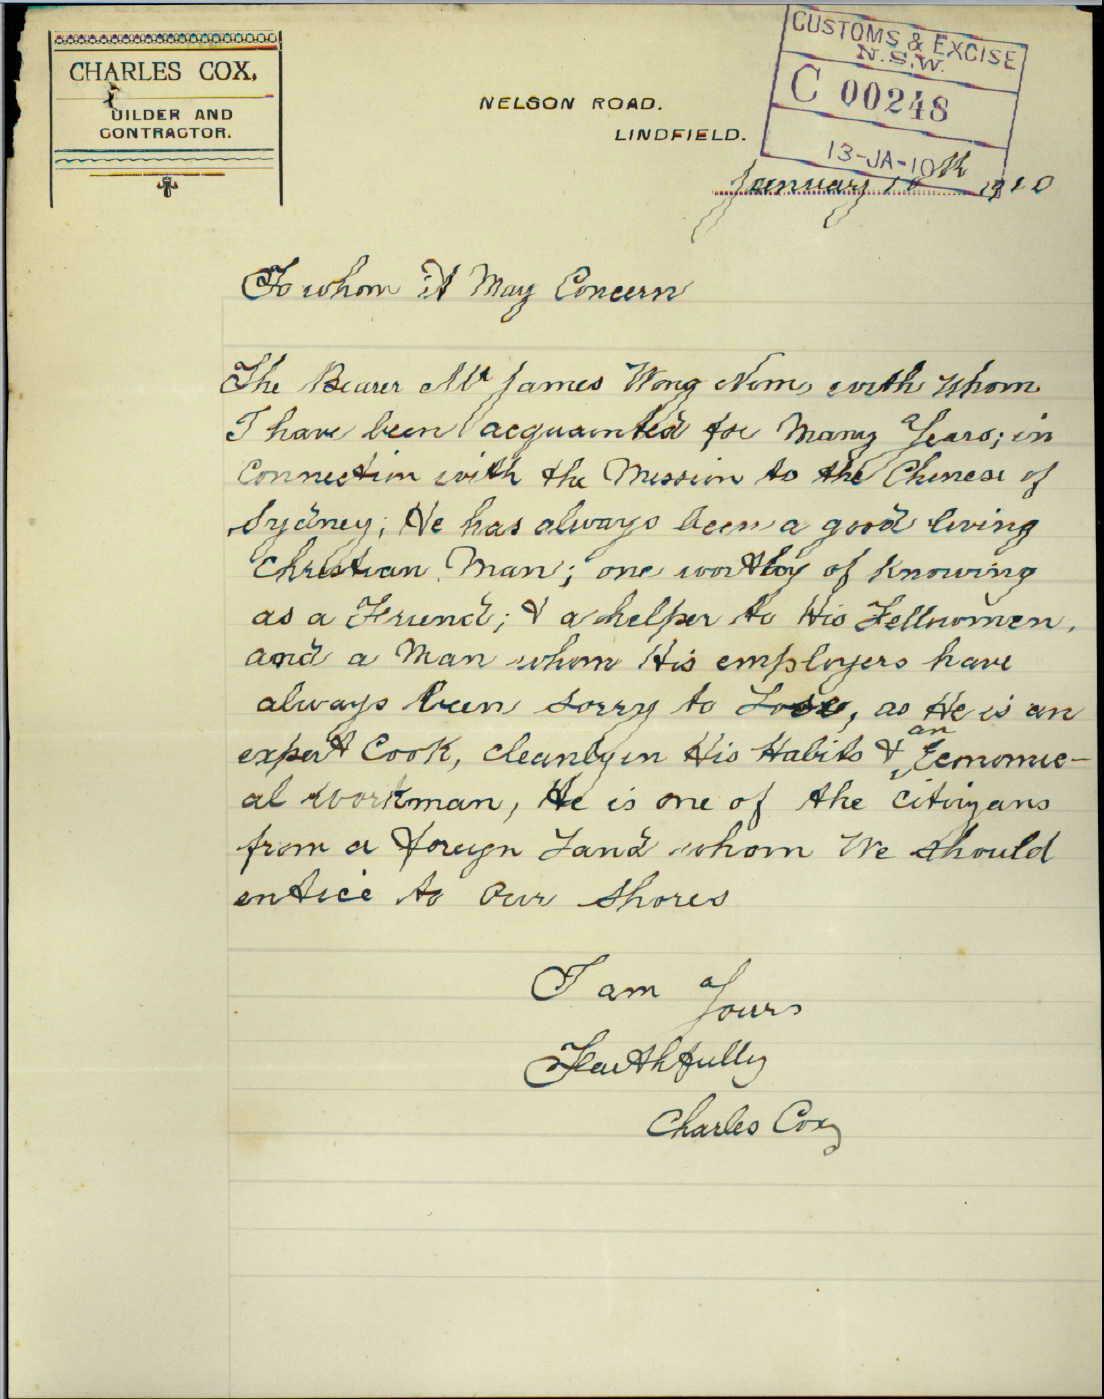 CHARLES COX.
UILDER AND
CONTRACTOR.
NELSON ROAD.
LINDFIELD.
CUSTOMS & EXCISE
N.S.W.
C 00248
13-JA-10
January 1910
To whom it May Concern
The Bearer Mr James Wong Nom, with whom
I have been acquainted for Many Years; in
Connection with the Mission to the Chinese of
Sydney; He has always been a good living
Christian Man; one worthy of Knowing
as a Friend; & a helper to His Fellowmen,
and a Man whom His employers have
always been sorry to Lose, as He is an
expert Cook, cleanly in His Habits & an Econonic-
al workman, He is one of the citizans
from a foreign Land whom We should
entice to Our Shores
I am Yours
Faithfully
Charles Cox